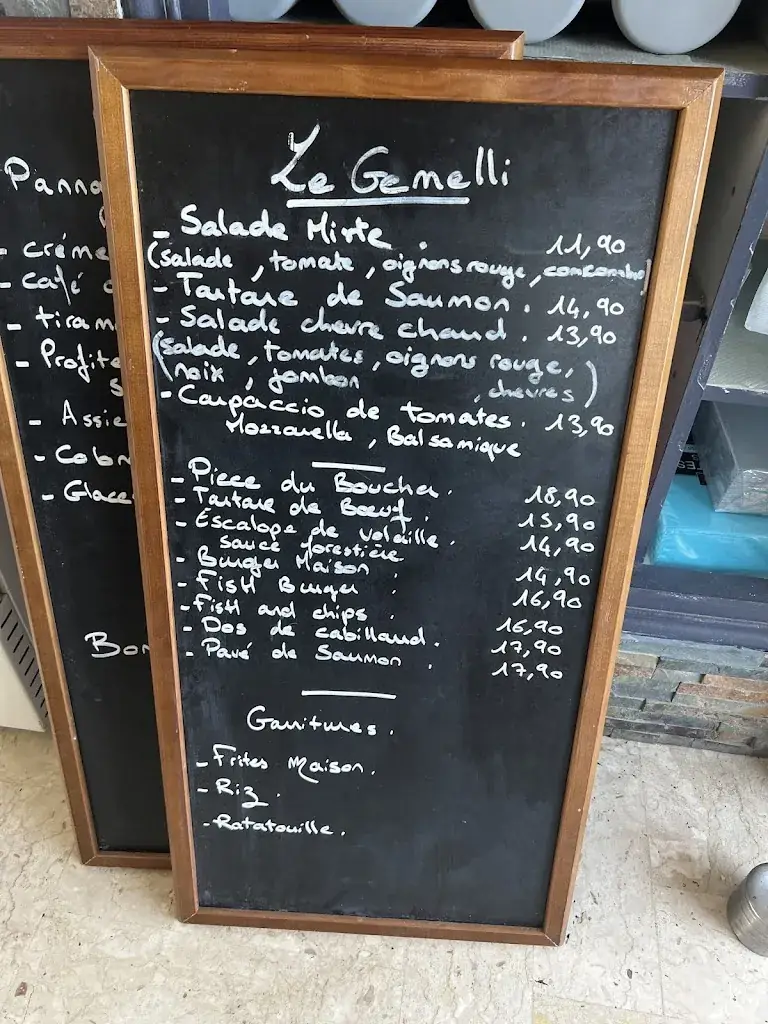 Le Gemelli
- Salade Mixte . 11,90
(salade, tomate, oignons rouge, concombre)
- Tartare de Saumon . 14,90
- Salade chevre chaud . 13,90
(salade, tomates, oignons rouge,
noix, jambon , chevres)
- Carpaccio de tomates . 13,90
Mozzarella, Balsamique
- Piece du Boucher . 18,90
- Tartare de Bœuf . 15,90
- Escalope de volaille . 14,90
sauce forestière
- Burger Maison . 14,90
- FisH Burger . 16,90
- FisH and chips . 16,90
- Dos de cabillaud . 17,90
- Pavé de Saumon . 17,90
Garnitures .
- Frites Maison .
- Riz .
- Ratatouille .
Panna
- créme
- café
- tiram
- Profite
- Assie
- Colon
- Glace
Bon